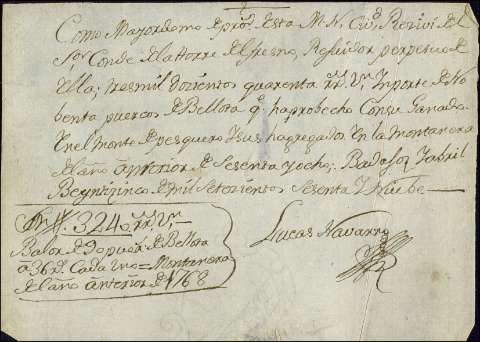 Como Mayordomo de pros. Esta M. N. Ciud. Rezivi del
Sor. Conde de la ttorre del fresno, Rejidor perpetuo de
Ella; tresmil dozientos quarenta rrs. Vn. Inporte de No
benta puercos de Bellota q. ha probecho Con su Ganado
En el Monte de pesquero Y sus hagregados En la montanera
del año anterior de Sesenta y ocho; Badajoz Y abril
Beynticinco de mil Setezientos Sesenta Y Nuebe
Lucas Navarro
Son 3240 rrs. Vn.
Balor de 90 puercs. de Bellota
a 36 rs. Cada Uno = Montanera
del año anterior de 1768